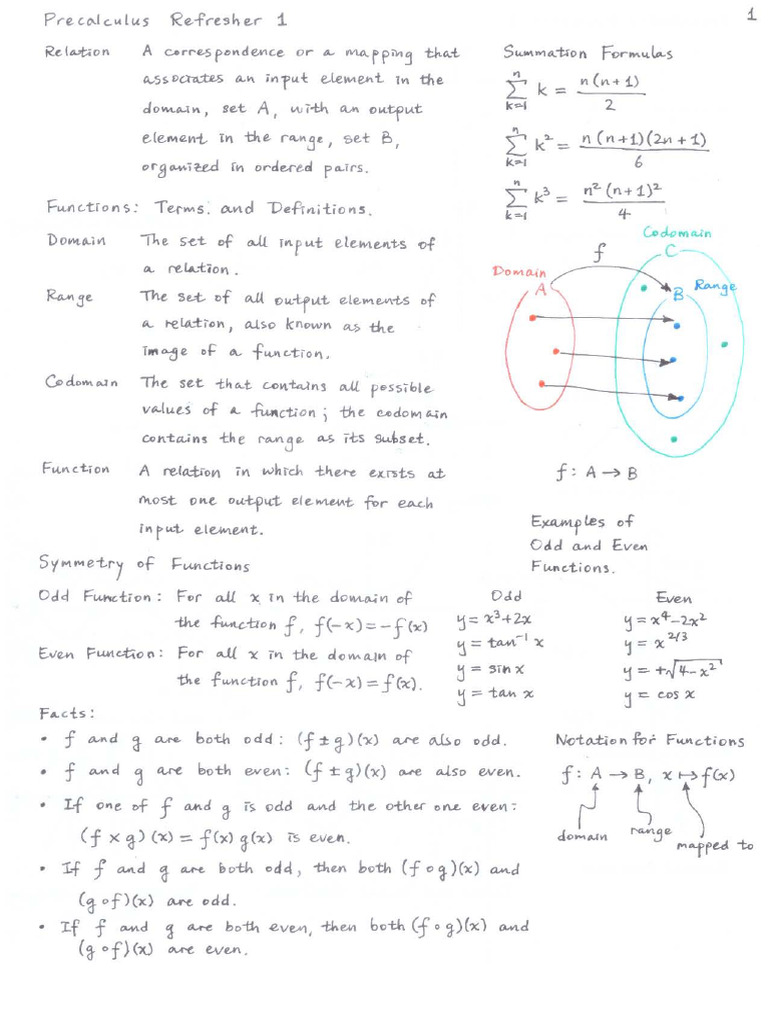 Precalculus Refresher 1
1
Relation A correspondence or a mapping that
associates an input element in the
domain, set A, with an output
element in the range, set B,
organized in ordered pairs.
Functions: Terms and Definitions.
Domain The set of all input elements of
a relation.
Range The set of all output elements of
a relation, also known as the
image of a function.
Codomain The set that contains all possible
values of a function; the codomain
contains the range as its subset.
Function A relation in which there exists at
most one output element for each
input element.
Summation Formulas
∑_{k=1}^{n} k = n(n+1)/2
∑_{k=1}^{n} k² = n(n+1)(2n+1)/6
∑_{k=1}^{n} k³ = n²(n+1)²/4
Codomain
C
f
Domain
A
B Range
f: A → B
Examples of
Odd and Even
Functions.
Symmetry of Functions
Odd Function: For all x in the domain of
the function f, f(-x) = -f(x)
Even Function: For all x in the domain of
the function f, f(-x) = f(x).
Odd Even
y = x³+2x y = x⁴-2x²
y = tan⁻¹ x y = x^{2/3}
y = sin x y = +√(4-x²)
y = tan x y = cos x
Facts:
• f and g are both odd: (f ± g)(x) are also odd.
• f and g are both even: (f ± g)(x) are also even.
• If one of f and g is odd and the other one even:
(f × g)(x) = f(x) g(x) is even.
• If f and g are both odd, then both (f ∘ g)(x) and
(g ∘ f)(x) are odd.
• If f and g are both even, then both (f ∘ g)(x) and
(g ∘ f)(x) are even.
Notation for Functions
f: A → B, x ↦ f(x)
domain range mapped to